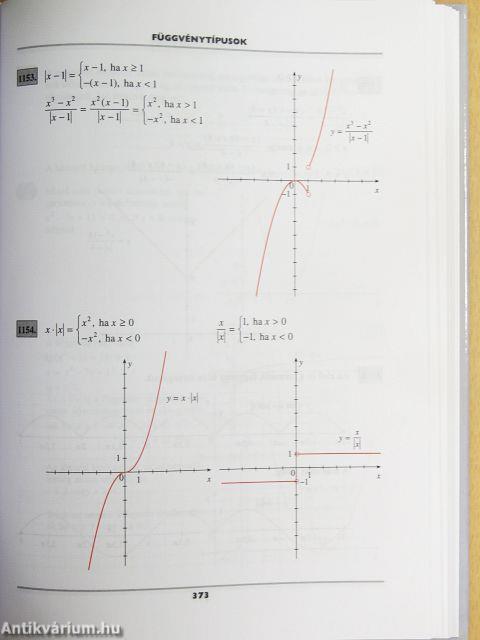 FÜGGVÉNYTÍPUSOK
1153. |x − 1| = { x − 1, ha x ≥ 1
−(x − 1), ha x < 1
(x³ − x²)/|x − 1| = x²(x − 1)/|x − 1| = { x², ha x > 1
−x², ha x < 1
y
y = (x³ − x²)/|x − 1|
1
0 1 x
−1
1154. x · |x| = { x², ha x ≥ 0
−x², ha x < 0
x/|x| = { 1, ha x > 0
−1, ha x < 0
y
y = x · |x|
1
0 1 x
y
y = x/|x|
1
0 1 x
−1
373
Antikvárium.hu